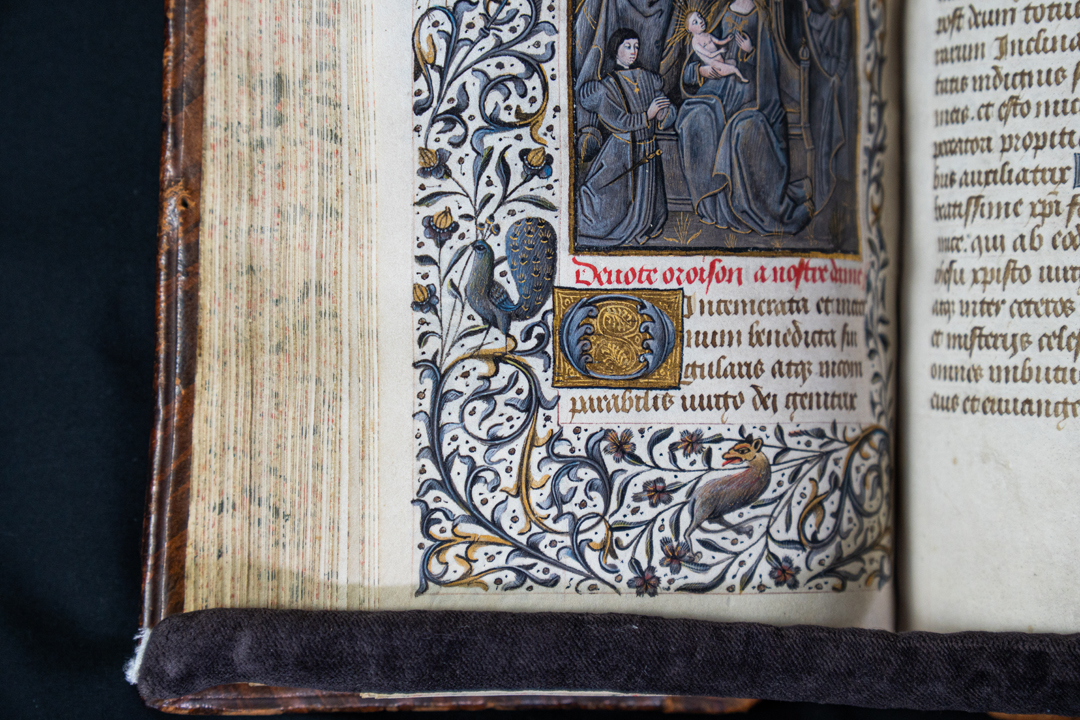 Deuote oroison a nostre dame
O Intemerata et in eter
num benedicta sin
gularis atqz incom
parabilis uirgo dei genitrix
post deum totius
Inclina
tatis
meis. et esto mic
peccatori propiti
bus auxiliatrix
beatissime xpi f
mice. qui ab eod
ihesu xpisto uirg
atqz inter ceteros
et misterijs celes
omnes imbutus
eius et euange